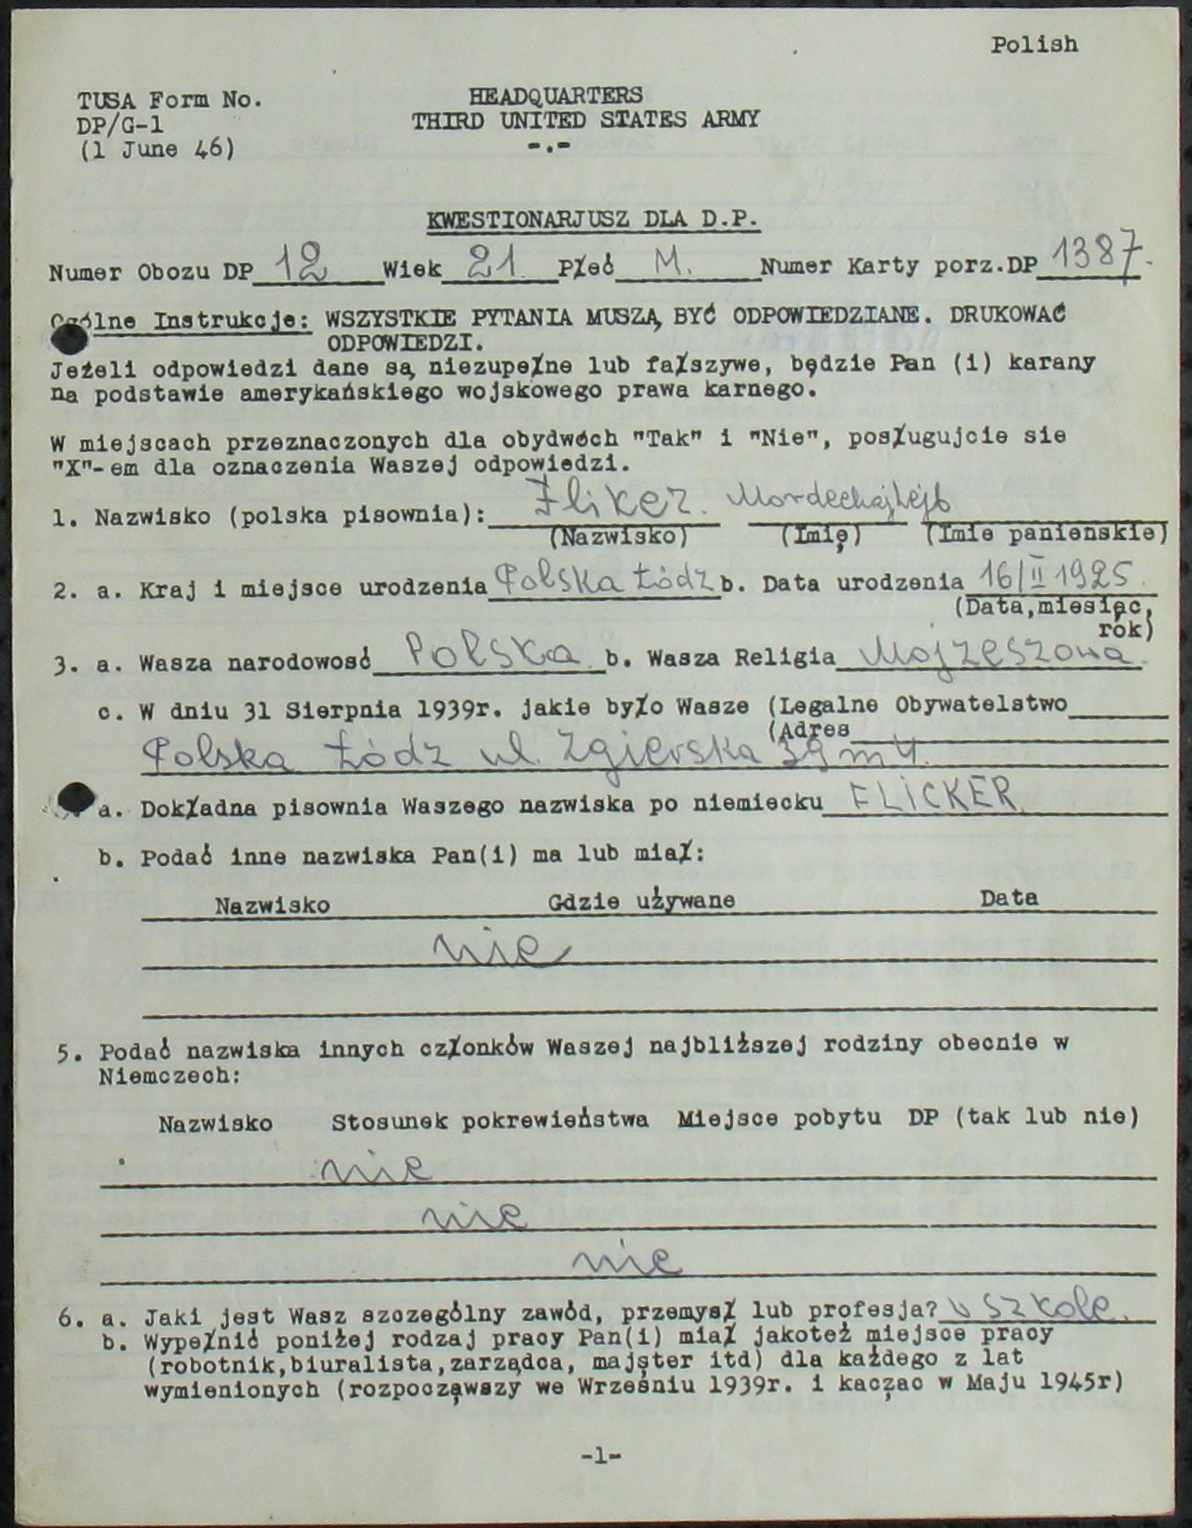 Polish
TUSA Form No. HEADQUARTERS
DP/G-1 THIRD UNITED STATES ARMY
(1 June 46) -.-
KWESTIONARJUSZ DLA D.P.
Numer Obozu DP 12 Wiek 21 Płeć M. Numer Karty porz.DP 1387.
Ogólne Instrukcje: WSZYSTKIE PYTANIA MUSZĄ BYĆ ODPOWIEDZIANE. DRUKOWAĆ
ODPOWIEDZI.
Jeżeli odpowiedzi dane są niezupełne lub fałszywe, będzie Pan (i) karany
na podstawie amerykańskiego wojskowego prawa karnego.
W miejscach przeznaczonych dla obydwóch "Tak" i "Nie", posługujcie sie
"X"-em dla oznaczenia Waszej odpowiedzi.
1. Nazwisko (polska pisownia): Fliker. Mordechaj Lejb
(Nazwisko) (Imię) (Imie panienskie)
2. a. Kraj i miejsce urodzenia Polska Łódz b. Data urodzenia 16/II 1925.
(Data,miesiąc,
rok)
3. a. Wasza narodowosć Polska. b. Wasza Religia Mojzeszowa.
c. W dniu 31 Sierpnia 1939r. jakie było Wasze (Legalne Obywatelstwo
(Adres
Polska Łódz ul. Zgierska 39 m 4.
a. Dokładna pisownia Waszego nazwiska po niemiecku FLICKER.
b. Podać inne nazwiska Pan(i) ma lub miał:
Nazwisko Gdzie używane Data
nie
5. Podać nazwiska innych członków Waszej najbliższej rodziny obecnie w
Niemczech:
Nazwisko Stosunek pokrewieństwa Miejsce pobytu DP (tak lub nie)
nie
nie
nie
6. a. Jaki jest Wasz szczególny zawód, przemysł lub profesja? w szkole.
b. Wypełnić poniżej rodzaj pracy Pan(i) miał jakoteż miejsce pracy
(robotnik,biuralista,zarządca, majster itd) dla każdego z lat
wymienionych (rozpocząwszy we Wrześniu 1939r. i kacząc w Maju 1945r)
-1-